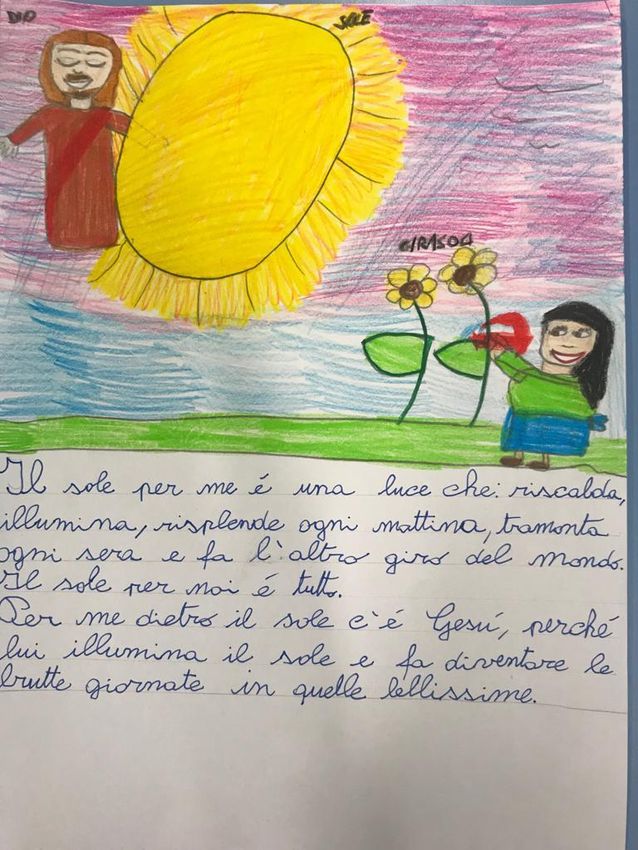 DIO
SOLE
GIRASOLI
Il sole per me é una luce che: riscalda,
illumina, risplende ogni mattina, tramonta
ogni sera e fa l'altro giro del mondo.
Il sole per noi é tutto.
Per me dietro il sole c'é Gesú, perché
lui illumina il sole e fa diventare le
brutte giornate in quelle bellissime.